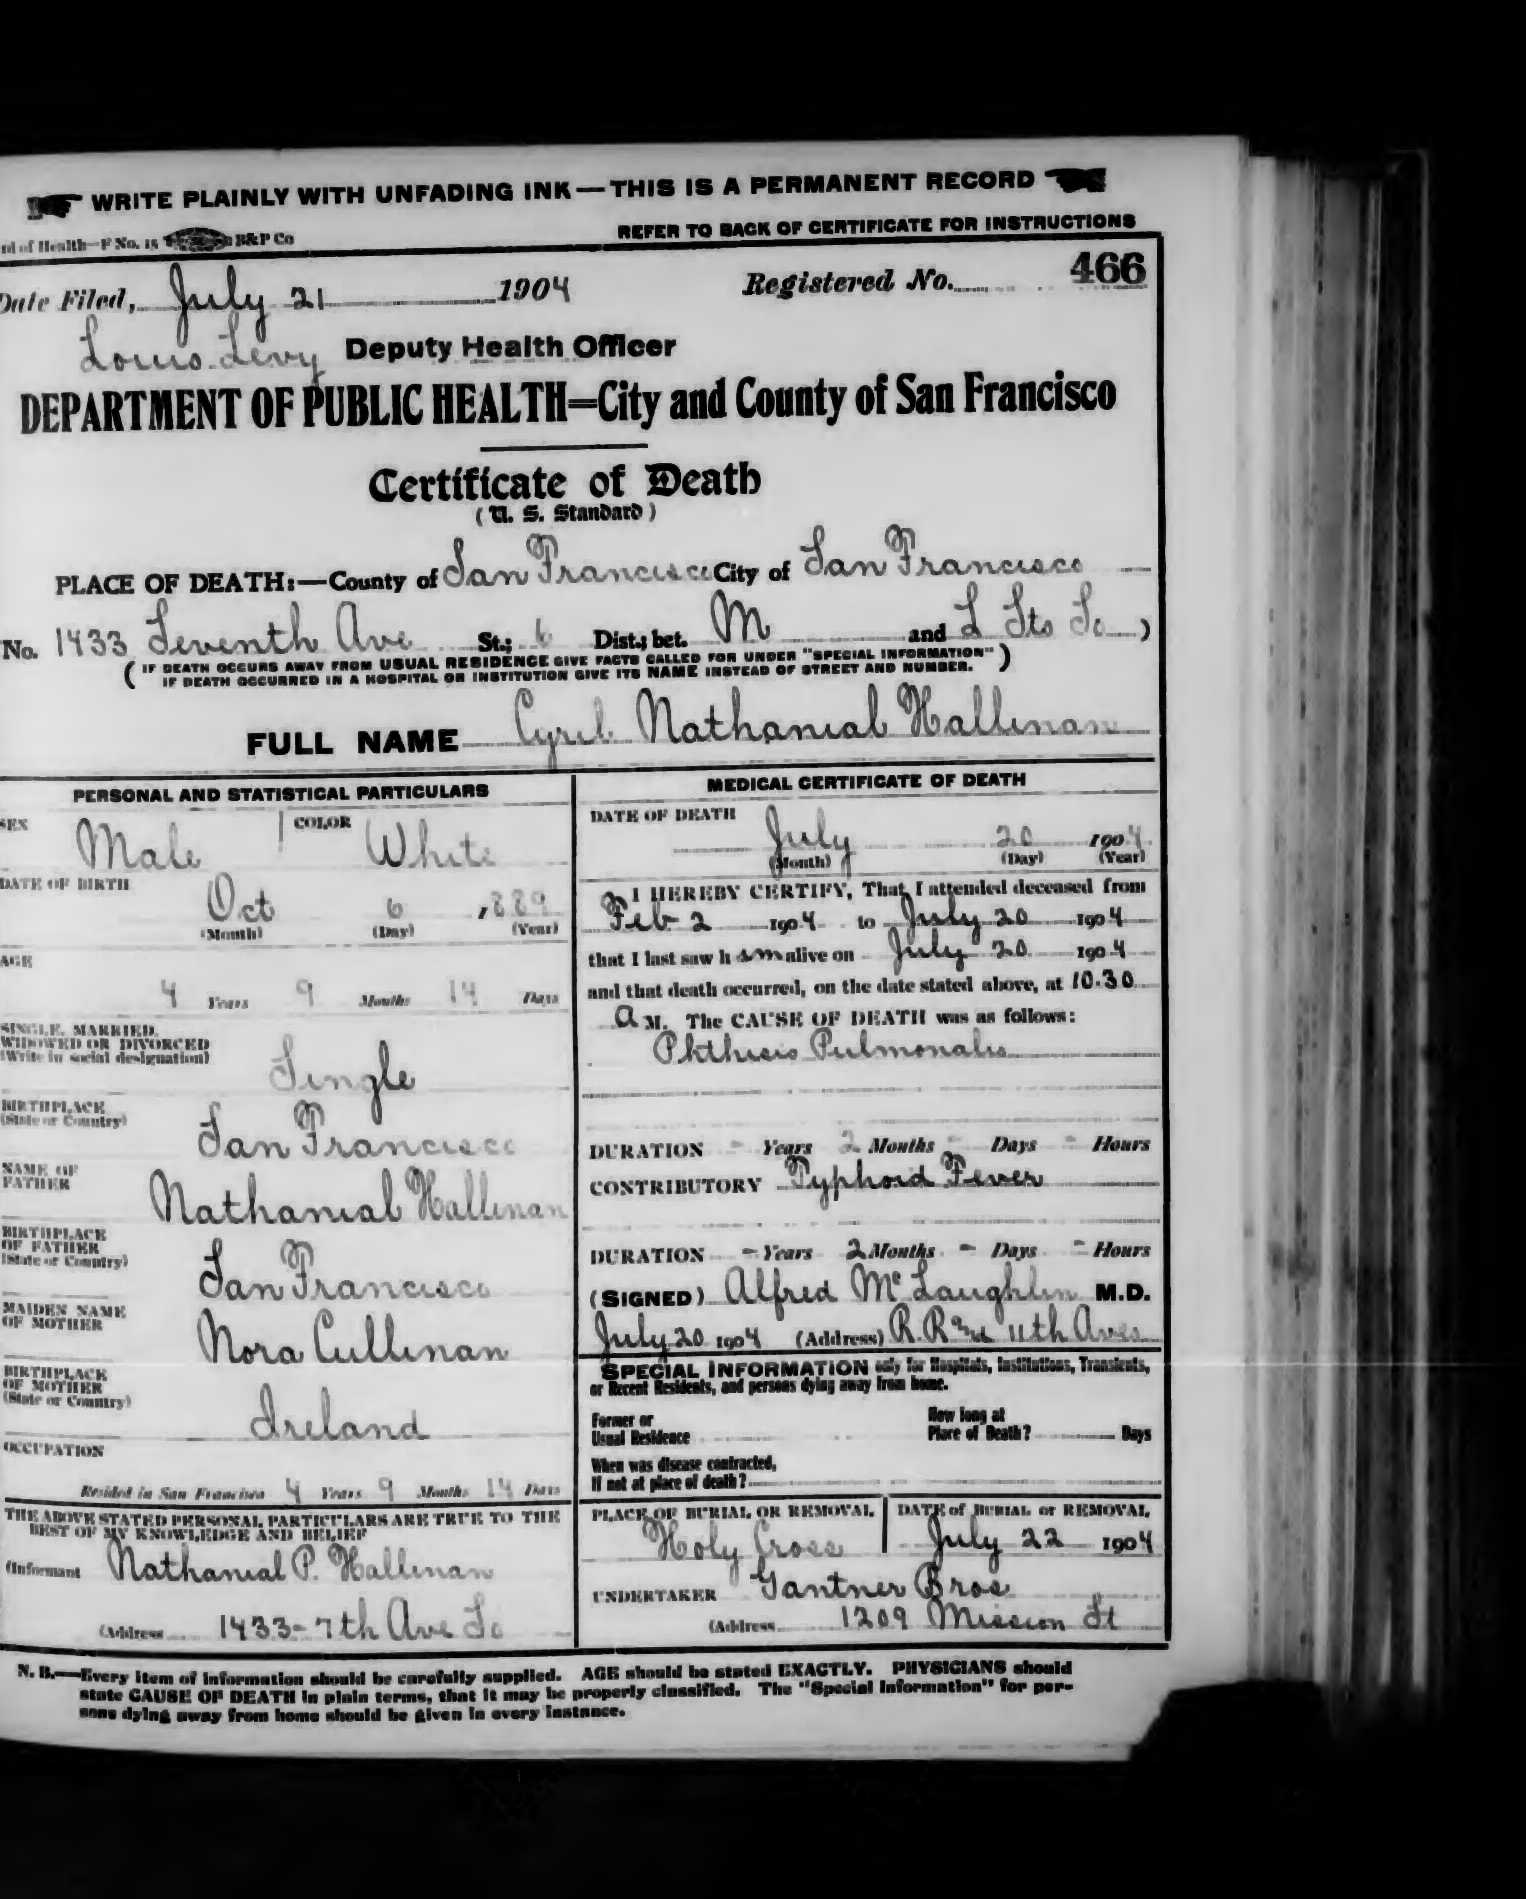 WRITE PLAINLY WITH UNFADING INK—THIS IS A PERMANENT RECORD
of Health—F No. 15 B&P Co REFER TO BACK OF CERTIFICATE FOR INSTRUCTIONS
Date Filed, July 21 1904 Registered No. 466
Louis Levy Deputy Health Officer
DEPARTMENT OF PUBLIC HEALTH=City and County of San Francisco
Certificate of Death
(U. S. Standard)
PLACE OF DEATH:—County of San Francisco City of San Francisco
No. 1433 Seventh Ave St.; 6 Dist.; bet. M and L Sts So )
( IF DEATH OCCURS AWAY FROM USUAL RESIDENCE GIVE FACTS CALLED FOR UNDER "SPECIAL INFORMATION" )
IF DEATH OCCURRED IN A HOSPITAL OR INSTITUTION GIVE ITS NAME INSTEAD OF STREET AND NUMBER.
FULL NAME Cyril Nathanial Hallinan
PERSONAL AND STATISTICAL PARTICULARS
SEX Male COLOR White
DATE OF BIRTH
Oct 6 , 889
(Month) (Day) (Year)
AGE
4 Years 9 Months 14 Days
SINGLE, MARRIED,
WIDOWED OR DIVORCED
(Write in social designation)
Single
BIRTHPLACE
(State or Country)
San Francisco
NAME OF
FATHER
Nathanial Hallinan
BIRTHPLACE
OF FATHER
(State or Country)
San Francisco
MAIDEN NAME
OF MOTHER
Nora Cullinan
BIRTHPLACE
OF MOTHER
(State or Country)
Ireland
OCCUPATION
Resided in San Francisco 4 Years 9 Months 14 Days
THE ABOVE STATED PERSONAL PARTICULARS ARE TRUE TO THE
BEST OF MY KNOWLEDGE AND BELIEF
(Informant Nathanial P. Hallinan
(Address 1433-7th Ave So
MEDICAL CERTIFICATE OF DEATH
DATE OF DEATH
July 20 1904
(Month) (Day) (Year)
I HEREBY CERTIFY, That I attended deceased from
Feb 2 1904 to July 20 1904
that I last saw h im alive on July 20 1904
and that death occurred, on the date stated above, at 10.30
a M. The CAUSE OF DEATH was as follows:
Phthisis Pulmonalis
DURATION - Years 2 Months - Days - Hours
CONTRIBUTORY Typhoid Fever
DURATION - Years 2 Months - Days - Hours
(SIGNED) Alfred McLaughlin M.D.
July 20 1904 (Address) R.R and 11th Aves
SPECIAL INFORMATION only for Hospitals, Institutions, Transients,
or Recent Residents, and persons dying away from home.
Former or
Usual Residence
How long at
Place of Death? Days
When was disease contracted,
If not at place of death?
PLACE OF BURIAL OR REMOVAL
Holy Cross
DATE of BURIAL or REMOVAL
July 22 1904
UNDERTAKER Gantner Bros
(Address 1209 Mission St
N. B.—Every item of information should be carefully supplied. AGE should be stated EXACTLY. PHYSICIANS should
state CAUSE OF DEATH in plain terms, that it may be properly classified. The "Special Information" for per-
sons dying away from home should be given in every instance.